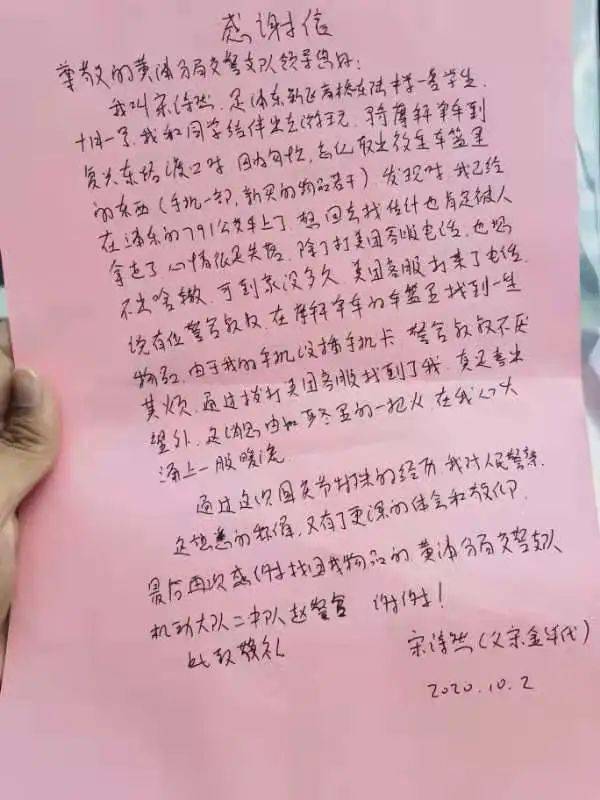 感谢信
尊敬的黄浦分局交警支队领导您好：
我叫宋诗然，是浦东新区高桥东陆中学一名学生，
十月一号，我和同学结伴出去游玩，骑摩拜单车到
复兴东路渡口时，因为匆忙，忘记取出放在车篮里
的东西（手机一部，新买的物品若干）发现时，我已经
在浦东的791公交车上了，想回去找估计也肯定被人
拿走了，心情很是失落，除了打美团客服电话，也想
不出啥辙，可到家没多久，美团客服打来了电话，
说有位警官叔叔，在摩拜单车的车篮里找到一些
物品，由于我的手机没插手机卡，警官叔叔不厌
其烦，通过拨打美团客服找到了我，真是喜出
望外，这消息犹如寒冬里的一把火，在我心头
涌上一股暖流。
通过这次国庆节特殊的经历，我对人民警察
这熟悉的称谓，又有了更深的体会和敬仰，
最后再次感谢找回我物品的黄浦分局交警支队
机动大队二中队赵警官 谢谢！
此致敬礼
宋诗然（父宋金华代）
2020.10.2